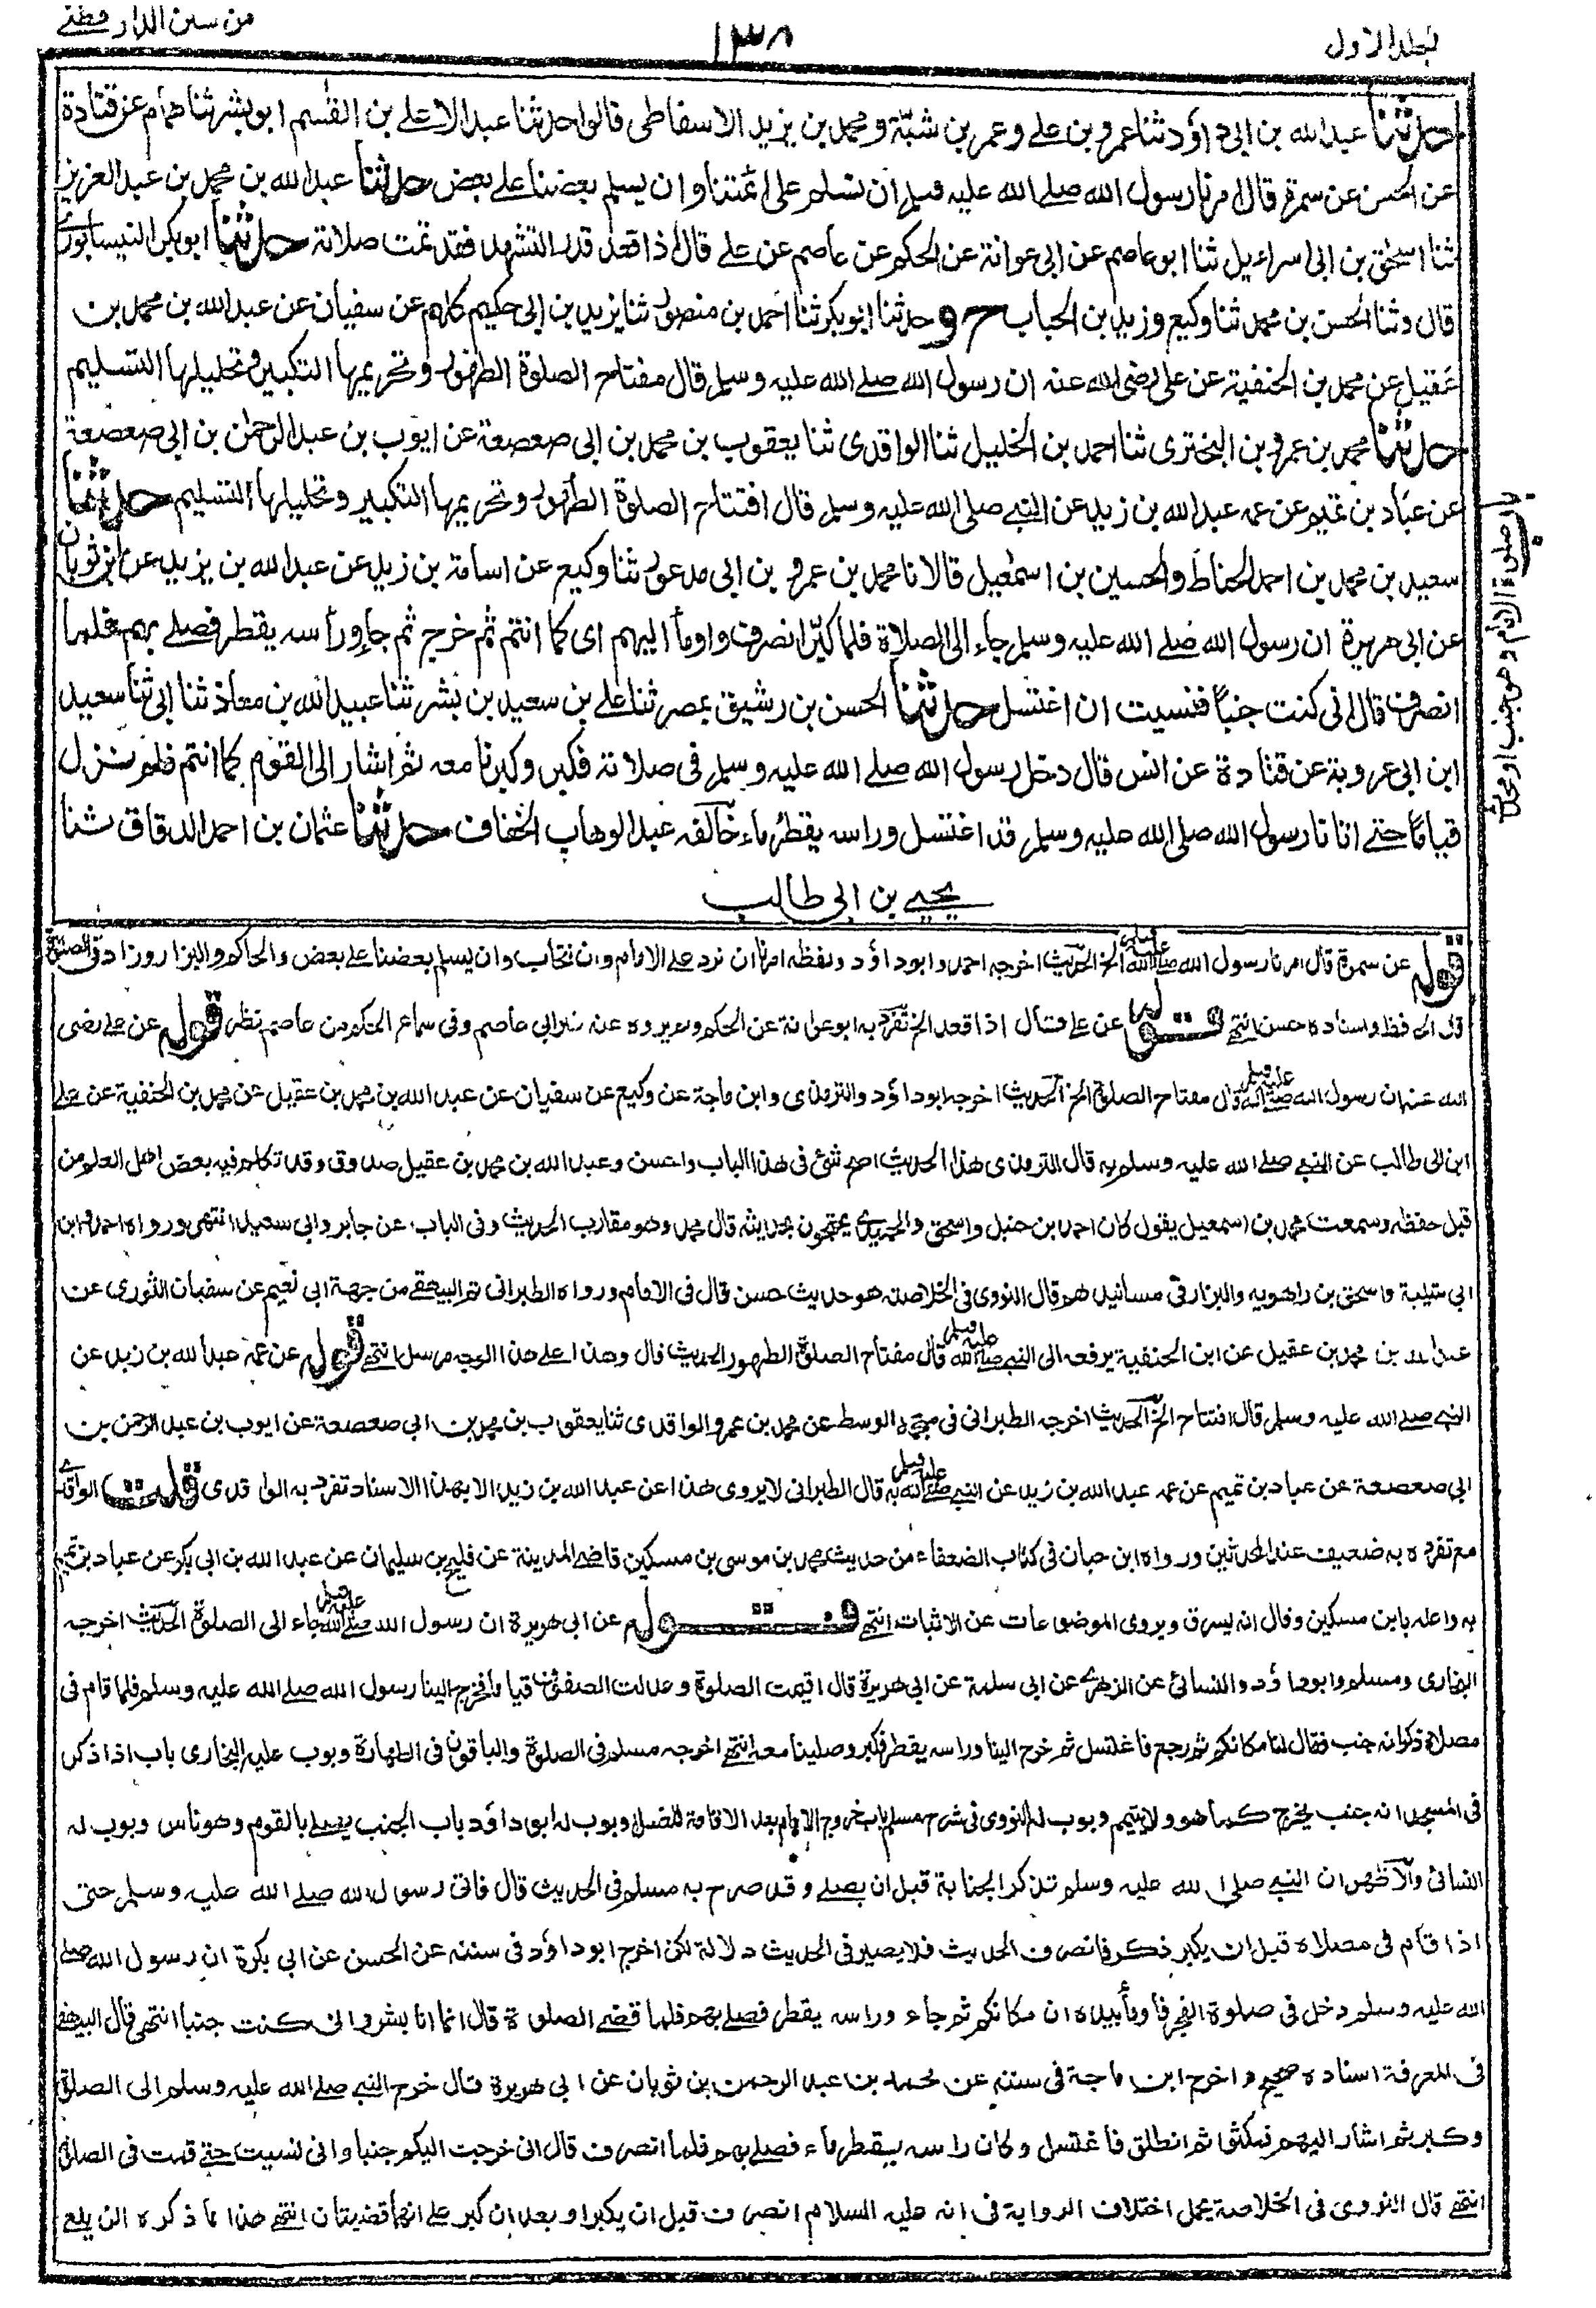 لجلد الاول
١٣٨
من سنن الدار قطنے
حدثنا عبد الله بن ابی داؤد ثنا عمرو بن علے وعمر بن شبّة ومحمد بن يزيد الاسفاطی قالوا حدثنا عبد الاعلے بن القٰسم ابو بشر ثنا همام عن قتادة
عن الحسن عن سمرة قال امرنا رسول الله صلے الله عليه وسلم ان نسلم علی ائمتنا وان يسلم بعضنا علے بعض حدثنا عبد الله بن محمد بن عبد العزيز
ثنا اسحٰق بن ابی اسراءيل ثنا ابو عاصم عن ابی عوانة عن الحكم عن عاصم عن علے قال اذا قعد قدر التشهد فقد تمت صلاته حدثنا ابو بكر النيسابورے
قال وثنا الحسن بن محمد ثنا وكيع وزيد بن الحباب ح وحدثنا ابو بكر ثنا احمد بن منصور ثنا يزيد بن ابی حكيم كلهم عن سفيان عن عبد الله بن محمد بن
عَقيل عن محمد بن الحنفية عن علی رضی الله عنه ان رسول الله صلے الله عليه وسلم قال مفتاح الصلوة الطهور وتحريمها التكبير وتحليلها التسليم
حدثنا محمد بن عمرو بن البختری ثنا احمد بن الخليل ثنا الواقدی ثنا يعقوب بن محمد بن ابی صعصعة عن ايوب بن عبد الرحمٰن بن ابی صعصعة
عن عبّاد بن تميم عن عمه عبد الله بن زيد عن النبے صلی الله عليه وسلم قال افتتاح الصلوة الطهور وتحريمها التكبير وتحليلها التسليم حدثنا
باب صلوة الامام وهو جنب او محدث
سعيد بن محمد بن احمد الحناط والحسين بن اسمٰعيل قالا نا محمد بن عمرو بن ابی مدعور ثنا وكيع عن اسامة بن زيد عن عبد الله بن يزيد عن ابن ثوبان
عن ابی هريرة ان رسول الله صلے الله عليه وسلم جاء الی الصلاة فلما كبّر انصرف واومأ اليهم ای كما انتم ثم خرج ثم جاء ورأسه يقطر فصلے بهم فلما
انصرف قال انی كنت جنباً فنسيت ان اغتسل حدثنا الحسن بن رشيق بمصر ثنا علے بن سعيد بن بشر ثنا عبيد الله بن معاذ ثنا ابی ثنا سعيد
ابن ابی عروبة عن قتادة عن انس قال دخل رسول الله صلے الله عليه وسلم فی صلاته فكبر وكبرنا معه ثم اشار الی القوم كما انتم فلم نزل
قياماً حتے اتانا رسول الله صلی الله عليه وسلم قد اغتسل وراسه يقطر ماء خالفه عبد الوهاب الخفاف حدثنا عثمان بن احمد الدقاق ثنا
يحيے بن ابی طالب
قوله عن سمرة قال امرنا رسول الله صلی الله عليه وسلم الخ الحديث اخرجه احمد وابو داؤد ولفظه امرنا ان نرد علے الامام وان نتحاب وان يسلم بعضنا علے بعض والحاكم والبزار وزاد فی الصلوة
قال الحافظ واسناده حسن انتهے قوله عن علے قال اذا قعد الخ تفرد به ابو عوانة عن الحكم ولم يروه عنه غير ابی عاصم وفی سماع الحكم من عاصم نظر قوله عن علے رضی
الله عنه ان رسول الله صلی الله عليه وسلم قال مفتاح الصلوة الخ الحديث اخرجه ابو داؤد والترمذی وابن ماجة عن وكيع عن سفيان عن عبد الله بن محمد بن عقيل عن محمد بن الحنفية عن علے
ابن ابی طالب عن النبے صلے الله عليه وسلم به قال الترمذی هذا الحديث اصح شئ فی هذا الباب واحسن وعبد الله بن محمد بن عقيل صدوق وقد تكلم فيه بعض اهل العلم من
قبل حفظه وسمعت محمد بن اسمعيل يقول كان احمد بن حنبل واسحٰق والحميدی يحتجون بحديثه قال محمد وهو مقارب الحديث وفی الباب عن جابر وابی سعيد انتهی ورواه احمد وابن
ابی شيبة واسحق بن راهويه والبزار فی مسانيدهم قال النووی فی الخلاصة هو حديث حسن قال فی الامام ورواه الطبرانی ثم البيهقے من جهة ابی نعيم عن سفيان الثوری عن
عبد الله بن محمد بن عقيل عن ابن الحنفية يرفعه الی النبے صلی الله عليه وسلم قال مفتاح الصلوة الطهور الحديث قال وهذا علے هذا الوجه مرسل انتهے قوله عن عمه عبد الله بن زيد عن
النبے صلے الله عليه وسلم قال افتتاح الخ الحديث اخرجه الطبرانی فی معجمه الوسط عن محمد بن عمر والواقدی ثنا يعقوب بن محمد بن ابی صعصعة عن ايوب بن عبد الرحمن بن
ابی صعصعة عن عباد بن تميم عن عمه عبد الله بن زيد عن النبے صلی الله عليه وسلم به قال الطبرانی لا يروی هذا عن عبد الله بن زيد الا بهذا الاسناد تفرد به الواقدی قلت الواقدے
مع تفرده به ضعيف عند المحدثين ورواه ابن حبان فی كتاب الضعفاء من حديث محمد بن موسی بن مسكين قاضے المدينة عن فليح بن سليمان عن عبد الله بن ابی بكر عن عباد بن تميم
به واعله بابن مسكين وقال انه يسرق ويروی الموضوعات عن الاثبات انتهے قوله عن ابی هريرة ان رسول الله صلی الله عليه وسلم جاء الی الصلوة الحديث اخرجه
البخاری ومسلم وابو داؤد والنسائی عن الزهرے عن ابی سلمة عن ابی هريرة قال اقيمت الصلوة وعدلت الصفوف قياما فخرج الينا رسول الله صلے الله عليه وسلم فلما قام فی
مصلاه ذكر انه جنب فقال لنا مكانكم ثم رجع فاغتسل ثم خرج الينا وراسه يقطر فكبر وصلينا معه انتهے اخرجه مسلم فی الصلوة والباقون فی الطهارة وبوب عليه البخاری باب اذا ذكر
فی المسجد انه جنب يخرج كما هو ولا يتيمم وبوب له النووی فی شرح مسلم باب خروج الامام بعد الاقامة للغسل وبوب له ابو داؤد باب الجنب يصلے بالقوم وهو ناس وبوب له
النسائی والاظهر ان النبے صلی الله عليه وسلم تذكر الجنابة قبل ان يصلے وقد صرح به مسلم فی الحديث قال فاتی رسول الله صلے الله عليه وسلم حتی
اذا قام فی مصلاه قبل ان يكبر ذكر فانصرف الحديث فلا يصير فی الحديث دلالة لكن اخرج ابو داؤد فی سننه عن الحسن عن ابی بكرة ان رسول الله صلے
الله عليه وسلم دخل فی صلوة الفجر فاومأ بيده ان مكانكم ثم جاء وراسه يقطر فصلے بهم فلما قضے الصلوة قال انما انا بشر وانی كنت جنبا انتهی قال البيهقے
فی المعرفة اسناده صحيح واخرج ابن ماجة فی سننه عن محمد بن عبد الرحمن بن ثوبان عن ابی هريرة قال خرج النبے صلے الله عليه وسلم الی الصلوة
وكبر ثم اشار اليهم فمكثوا ثم انطلق فاغتسل وكان راسه يقطر ماء فصلے بهم فلما انصرف قال انی خرجت اليكم جنبا وانی نسيت حتے قمت فی الصلوة
انتهے قال النووی فی الخلاصة يحمل اختلاف الرواية فی انه عليه السلام انصرف قبل ان يكبر او بعد ان كبر علے انهما قضيتان انتهے هذا ما ذكره الزيلعے